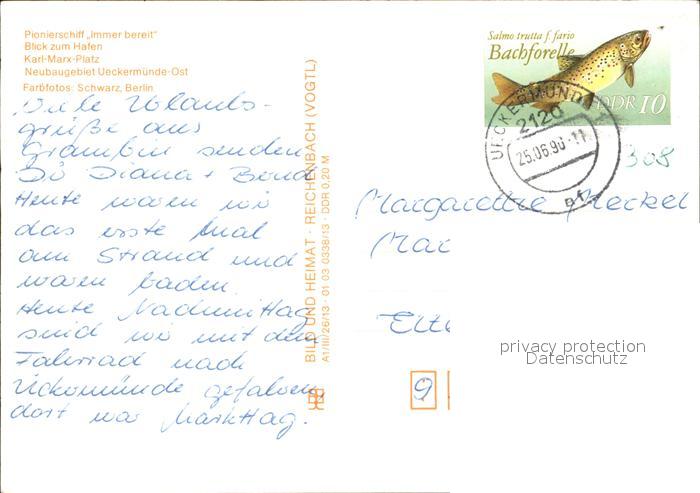 Pionierschiff „Immer bereit"
Blick zum Hafen
Karl-Marx-Platz
Neubaugebiet Ueckermünde-Ost
Farbfotos: Schwarz, Berlin
Viele Urlaubs-
grüße aus
Grambin senden
Diana + Bernd
Heute waren wir
das erste Mal
am Strand und
waren baden.
Heute Nachmittag
sind wir mit dem
Fahrrad nach
Ückermünde gefahren,
dort war Markttag.
BILD UND HEIMAT · REICHENBACH (VOGTL)
A1/III/26/13 · 01 03 0338/13 · DDR 0,20 M
Salmo trutta f. fario
Bachforelle
DDR 10
UECKERMÜNDE 1
2120
25.06.90-11
308
Margarethe Meckel
9
privacy protection
Datenschutz